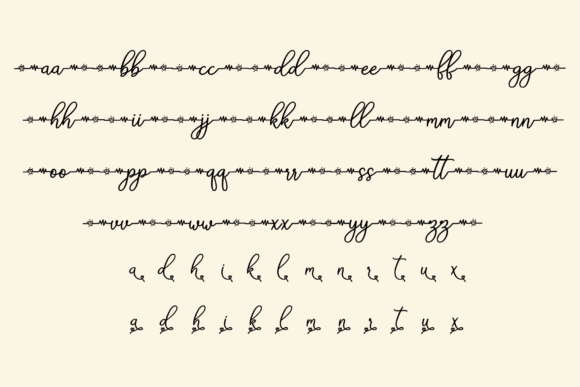 aa bb cc dd ee ff gg
hh ii jj kk ll mm nn
oo pp qq rr ss tt uu
vv ww xx yy zz
a d h i k l m n r t u x
a d h i k l m n r t u x